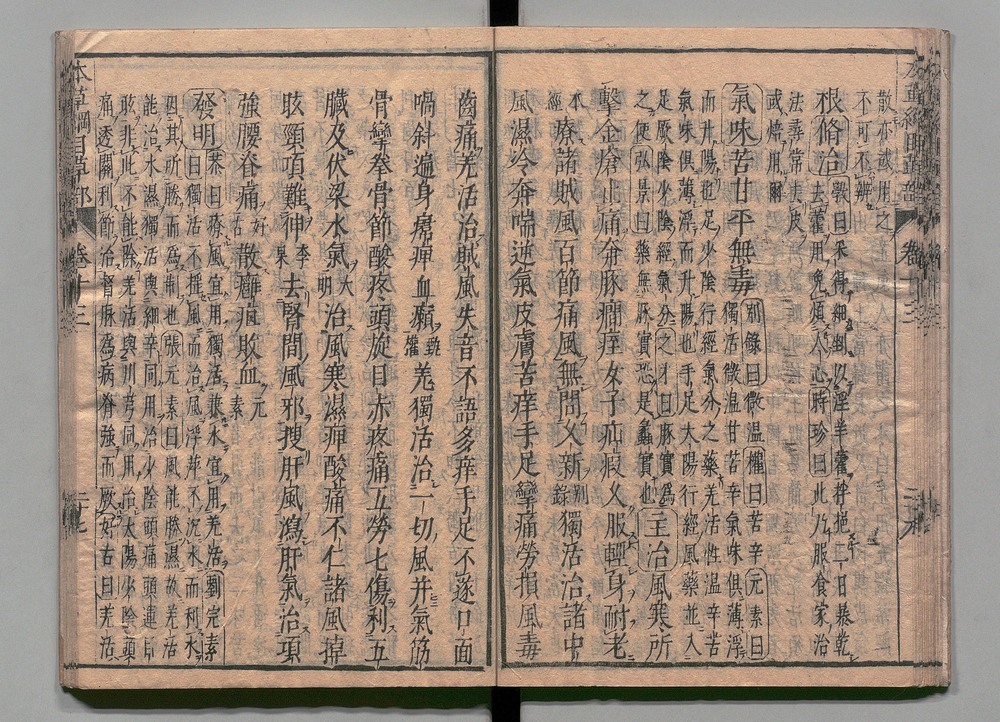 散亦或用之
不可不辨
根脩治 斅曰采得細剉以淫羊藿拌挹二日暴乾
去藿用免煩人心時珍曰此乃服食家治
法尋常去皮
或焙用爾
氣味苦甘平無毒 別錄曰微温權曰苦辛元素曰
獨活微温甘苦辛氣味俱薄浮
而升陽也足少陰行經氣分之藥羌活性温辛苦
氣味俱薄浮而升陽也手足太陽行經風藥並入
足厥陰少陰經氣分之才曰豚實爲
之使弘景曰藥無豚實恐是蠡實也
主治風寒所
擊金瘡止痛奔豚癇痓女子疝瘕久服輕身耐老
本經 療諸賊風百節痛風無問久新 別錄 獨活治諸中
風濕冷奔喘逆氣皮膚苦痒手足攣痛勞損風毒
齒痛羌活治賊風失音不語多痒手足不遂口面
喎斜遍身𤸷痹血癩 甄權 羌獨活治一切風并氣筋
骨攣拳骨節酸疼頭旋目赤疼痛五勞七傷利五
臟及伏梁水氣 大明 治風寒濕痹酸痛不仁諸風掉
眩頸項難伸 李杲 去腎間風邪搜肝風瀉肝氣治項
強腰脊痛 好古 散癰疽敗血 元素
發明 恭曰療風宜用獨活兼水宜用羌活劉完素
曰獨活不搖風而治風浮萍不沉水而利水
因其所勝而爲制也張元素曰風能勝濕故羌活
能治水濕獨活與細辛同用治少陰頭痛頭運目
眩非此不能除羌活與川芎同用治太陽少陰頭
痛透關利節治督脉爲病脊強而厥好古曰羌活
本草綱目草部 卷十三 二十七